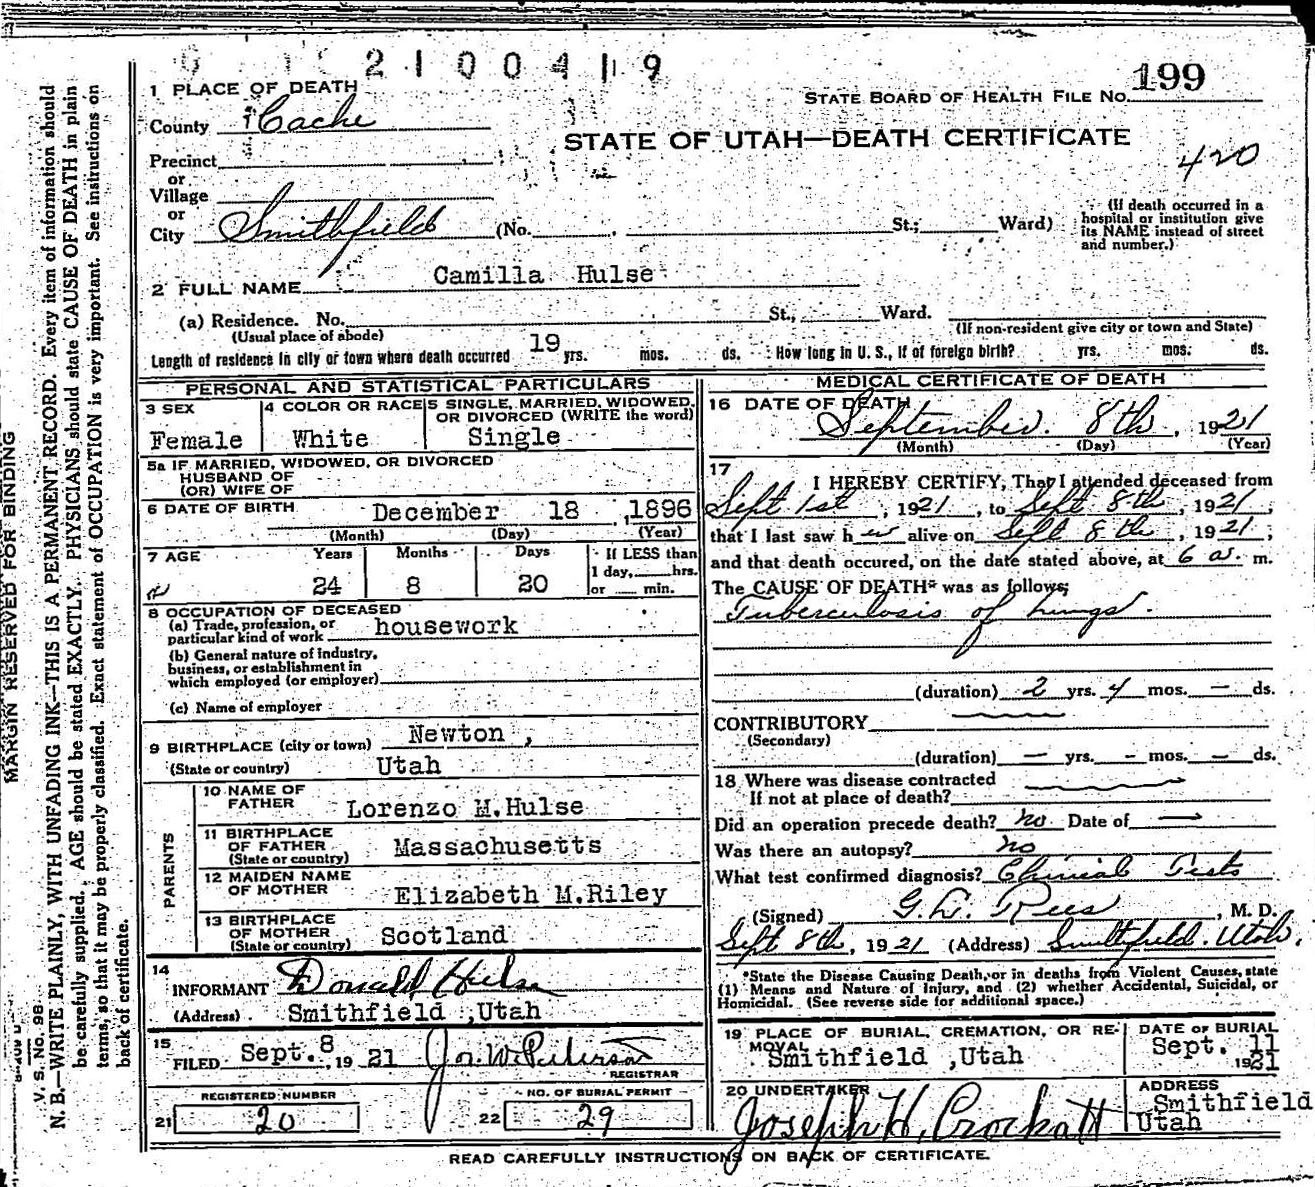 2100419
199
STATE BOARD OF HEALTH FILE NO.
1 PLACE OF DEATH
County Cache
STATE OF UTAH—DEATH CERTIFICATE
420
Precinct
or
Village
or
City Smithfield (No. St.; Ward)
(If death occurred in a
hospital or institution give
its NAME instead of street
and number.)
2 FULL NAME Camilla Hulse
(a) Residence. No. St., Ward.
(Usual place of abode) (If non-resident give city or town and State)
Length of residence in city or town where death occurred 19 yrs. mos. ds. How long in U. S., if of foreign birth? yrs. mos. ds.
PERSONAL AND STATISTICAL PARTICULARS
3 SEX
Female
4 COLOR OR RACE
White
5 SINGLE, MARRIED, WIDOWED,
OR DIVORCED (WRITE the word)
Single
5a IF MARRIED, WIDOWED, OR DIVORCED
HUSBAND OF
(OR) WIFE OF
6 DATE OF BIRTH December 18, 1896
(Month) (Day) (Year)
7 AGE Years Months Days If LESS than
1 day, hrs.
24 8 20 or min.
8 OCCUPATION OF DECEASED
(a) Trade, profession, or
particular kind of work housework
(b) General nature of industry,
business, or establishment in
which employed (or employer)
(c) Name of employer
9 BIRTHPLACE (city or town) Newton,
(State or country) Utah
PARENTS
10 NAME OF
FATHER Lorenzo M.Hulse
11 BIRTHPLACE
OF FATHER
(State or country) Massachusetts
12 MAIDEN NAME
OF MOTHER Elizabeth M.Riley
13 BIRTHPLACE
OF MOTHER
(State or country) Scotland
14
INFORMANT Donald Hulse
(Address) Smithfield ,Utah
15
FILED Sept. 8, 19 21 Jos. W. Peterson
REGISTRAR
REGISTERED NUMBER
21 20
NO. OF BURIAL PERMIT
22 29
MEDICAL CERTIFICATE OF DEATH
16 DATE OF DEATH
September 8th, 1921
(Month) (Day) (Year)
17
I HEREBY CERTIFY, That I attended deceased from
Sept 1st, 1921, to Sept 8th, 1921,
that I last saw her alive on Sept 8th, 1921;
and that death occured, on the date stated above, at 6 a. m.
The CAUSE OF DEATH* was as follows;
Tuberculosis of lungs.
(duration) 2 yrs. 4 mos. — ds.
CONTRIBUTORY
(Secondary)
(duration) — yrs. - mos. — ds.
18 Where was disease contracted
If not at place of death?
Did an operation precede death? no Date of —
Was there an autopsy? no
What test confirmed diagnosis? Clinical Tests
(Signed) G. L. Rees, M. D.
Sept 8th, 1921 (Address) Smithfield. Utah.
*State the Disease Causing Death, or in deaths from Violent Causes, state
(1) Means and Nature of Injury, and (2) whether Accidental, Suicidal, or
Homicidal. (See reverse side for additional space.)
19 PLACE OF BURIAL, CREMATION, OR RE-
MOVAL
Smithfield ,Utah
DATE OF BURIAL
Sept. 11
1921
20 UNDERTAKER
Joseph H. Crockett
ADDRESS
Smithfield
Utah
READ CAREFULLY INSTRUCTIONS ON BACK OF CERTIFICATE.
MARGIN RESERVED FOR BINDING
V. S. No. 98
N. B.—WRITE PLAINLY, WITH UNFADING INK—THIS IS A PERMANENT RECORD. Every item of information should
be carefully supplied. AGE should be stated EXACTLY. PHYSICIANS should state CAUSE OF DEATH in plain
terms, so that it may be properly classified. Exact statement of OCCUPATION is very important. See instructions on
back of certificate.